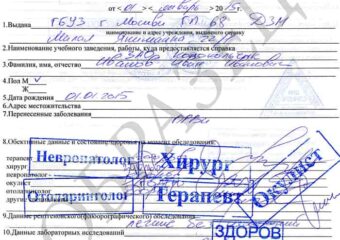 от «01» январь 2015г.
1.Выдана ГБУЗ г Москвы ГП 68 ДЗМ
наименование и адрес учреждения, выдавшего справку
Малая Якиманка 22/1
2.Наименование учебного заведения, работы, куда предоставляется справка
3.Фамилия, имя, отчество Иванов Иван Иванович
4.Пол М ✓
Ж
5.Дата рождения 01.01.2015
6.Адрес местожительства
7.Перенесенные заболевания
ОРВИ
8.Объективные данные и состояние здоровья на момент обследования:
терапевт
хирург
невропатолог
окулист
отоларинголог
другие
Невропатолог
Хирург
Окулист
Отоларинголог
Терапевт
9.Данные рентгеновского(флюорографического) обследования
легкие без
ЗДОРОВ
10.Данные лабораторных исследований
ОБРАЗЕЦ